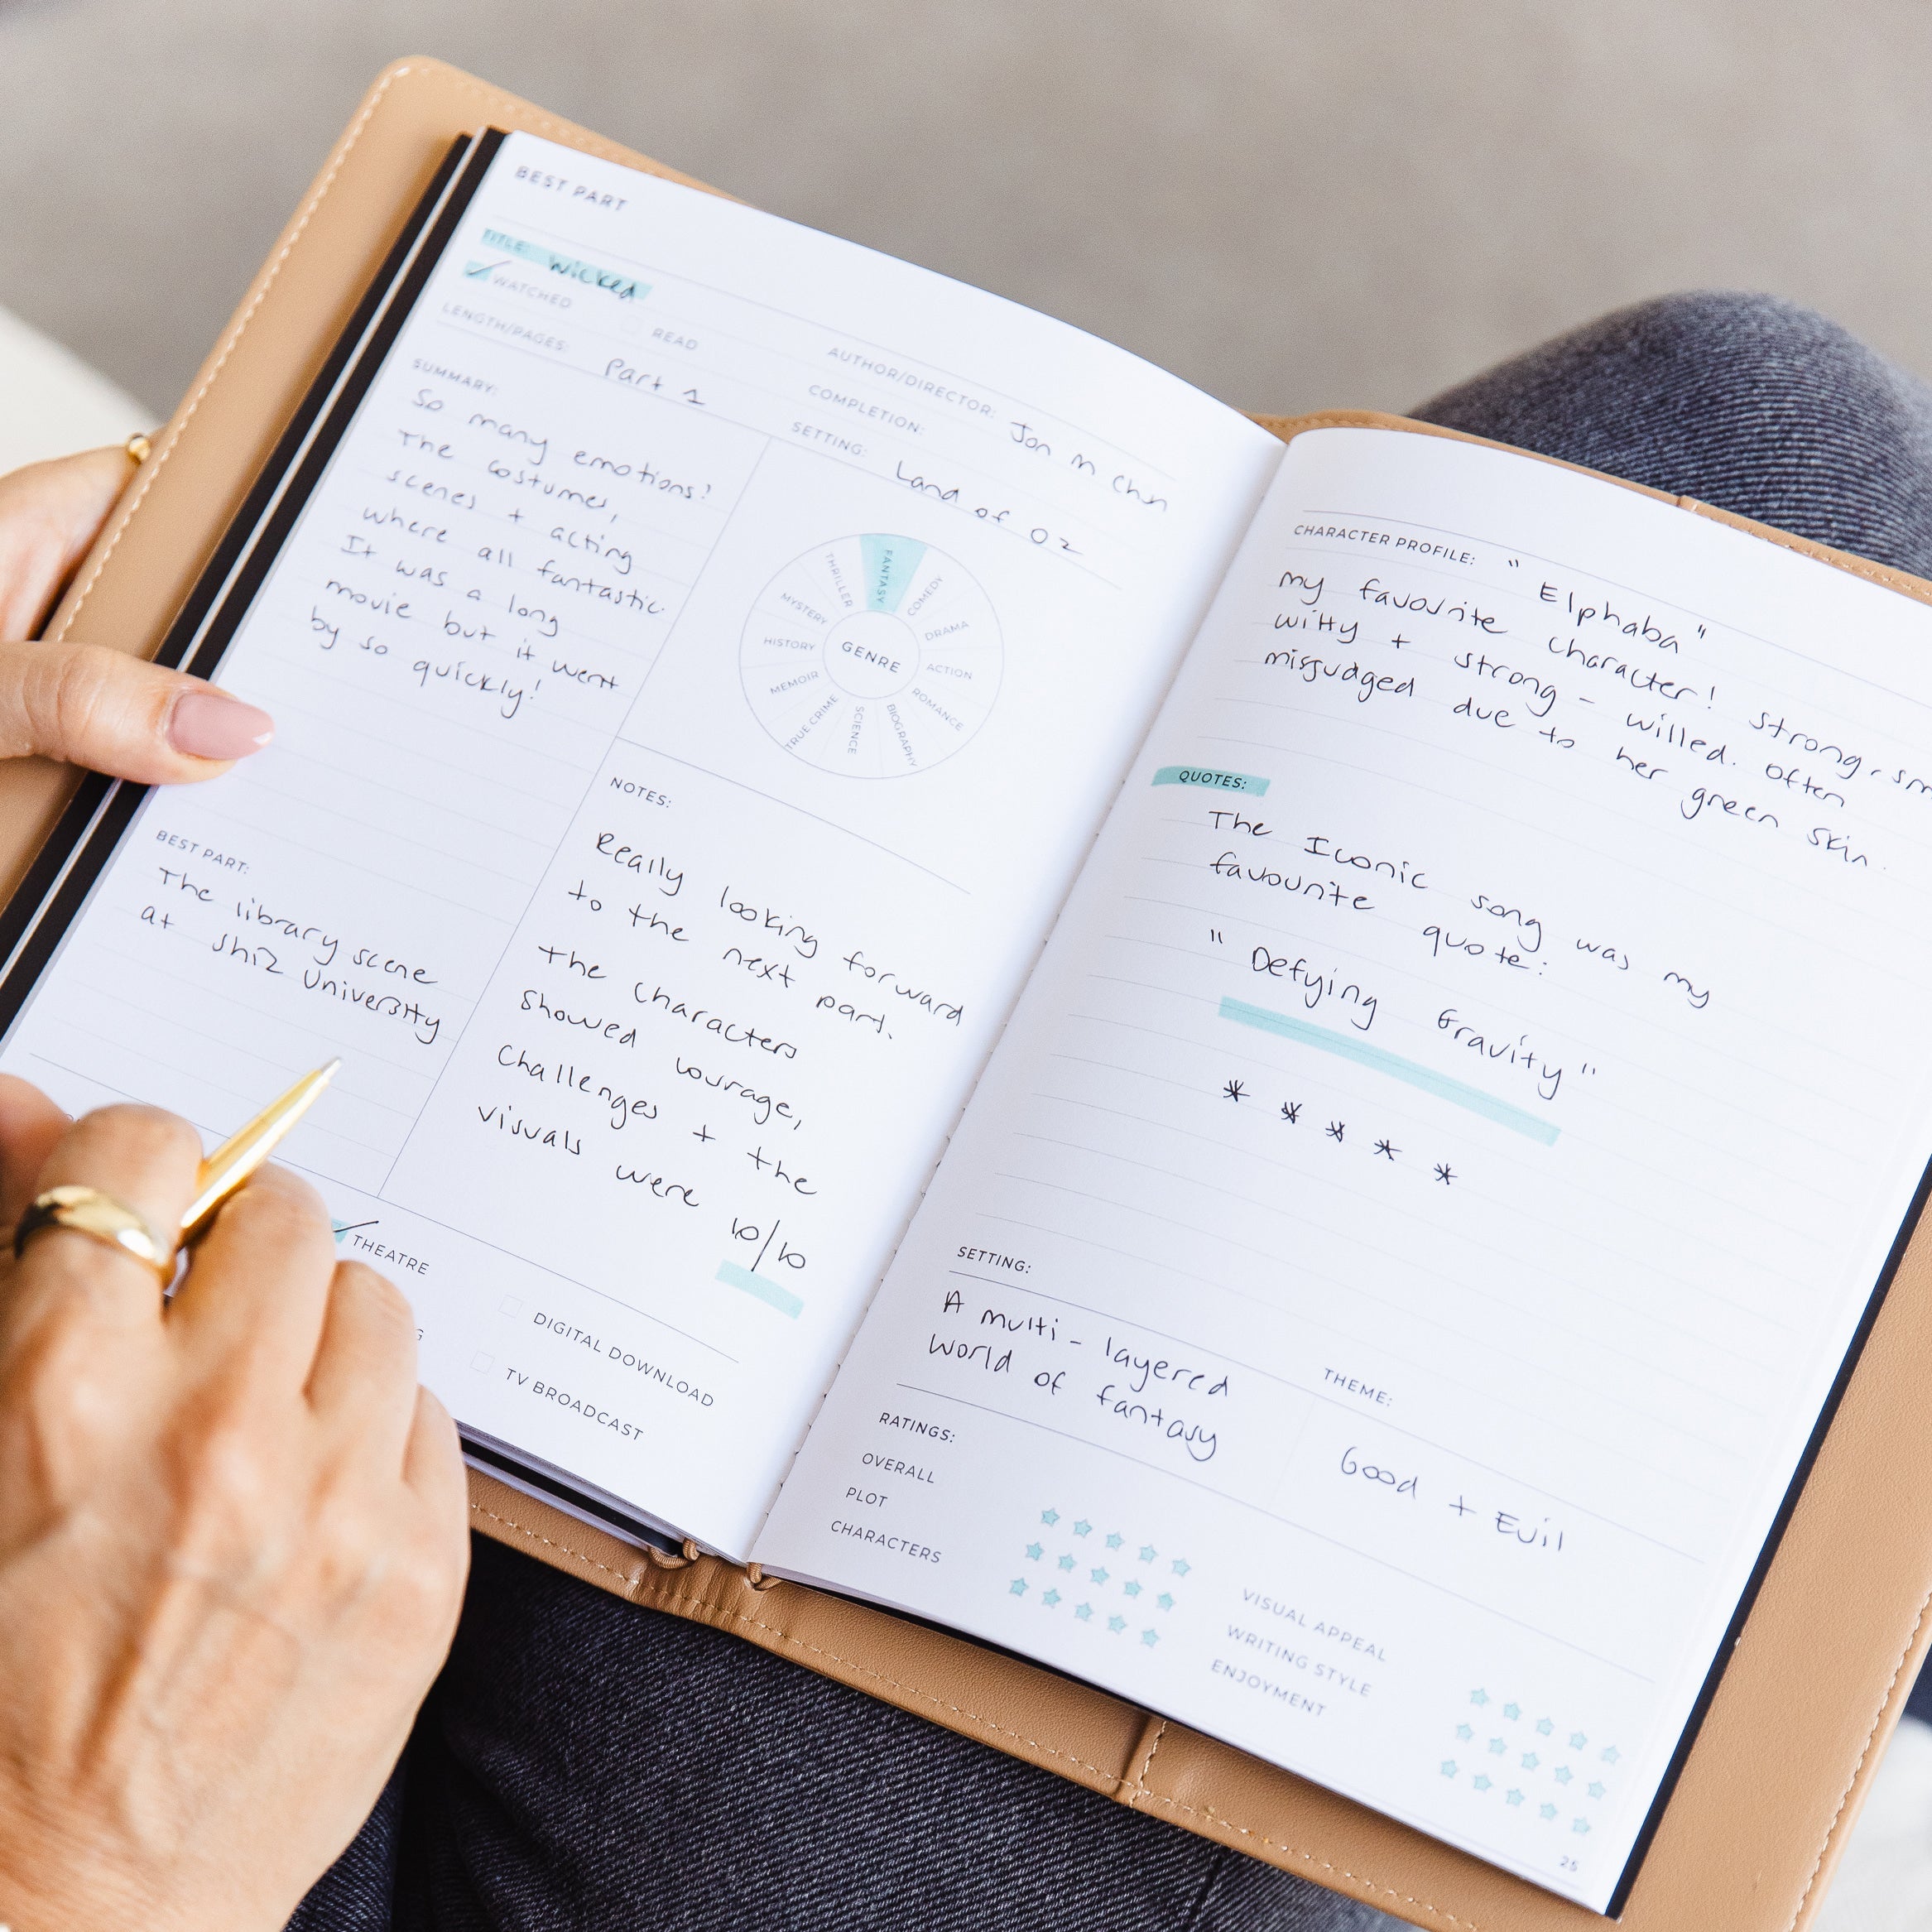 BEST PART
TITLE: Wicked
WATCHED READ
AUTHOR/DIRECTOR: Jon M Chu
LENGTH/PAGES: Part 1
COMPLETION:
SUMMARY:
So many emotions!
The costumes,
scenes + acting
where all fantastic.
It was a long
movie but it went
by so quickly!
SETTING: Land of Oz
GENRE
FANTASY
COMEDY
DRAMA
ACTION
ROMANCE
BIOGRAPHY
SCIENCE
TRUE CRIME
MEMOIR
HISTORY
MYSTERY
THRILLER
BEST PART:
The library scene
at Shiz University
NOTES:
Really looking forward
to the next part.
The characters
showed courage,
Challenges + the
visuals were
10/10
THEATRE
DIGITAL DOWNLOAD
TV BROADCAST
CHARACTER PROFILE: "Elphaba"
my favourite character! Strong, sm
witty + strong-willed. Often
misjudged due to her green skin.
QUOTES:
The Iconic song was my
favourite quote:
"Defying Gravity"
* * * * *
SETTING:
A multi-layered
world of fantasy
THEME:
Good + Evil
RATINGS:
OVERALL
PLOT
CHARACTERS
VISUAL APPEAL
WRITING STYLE
ENJOYMENT
25